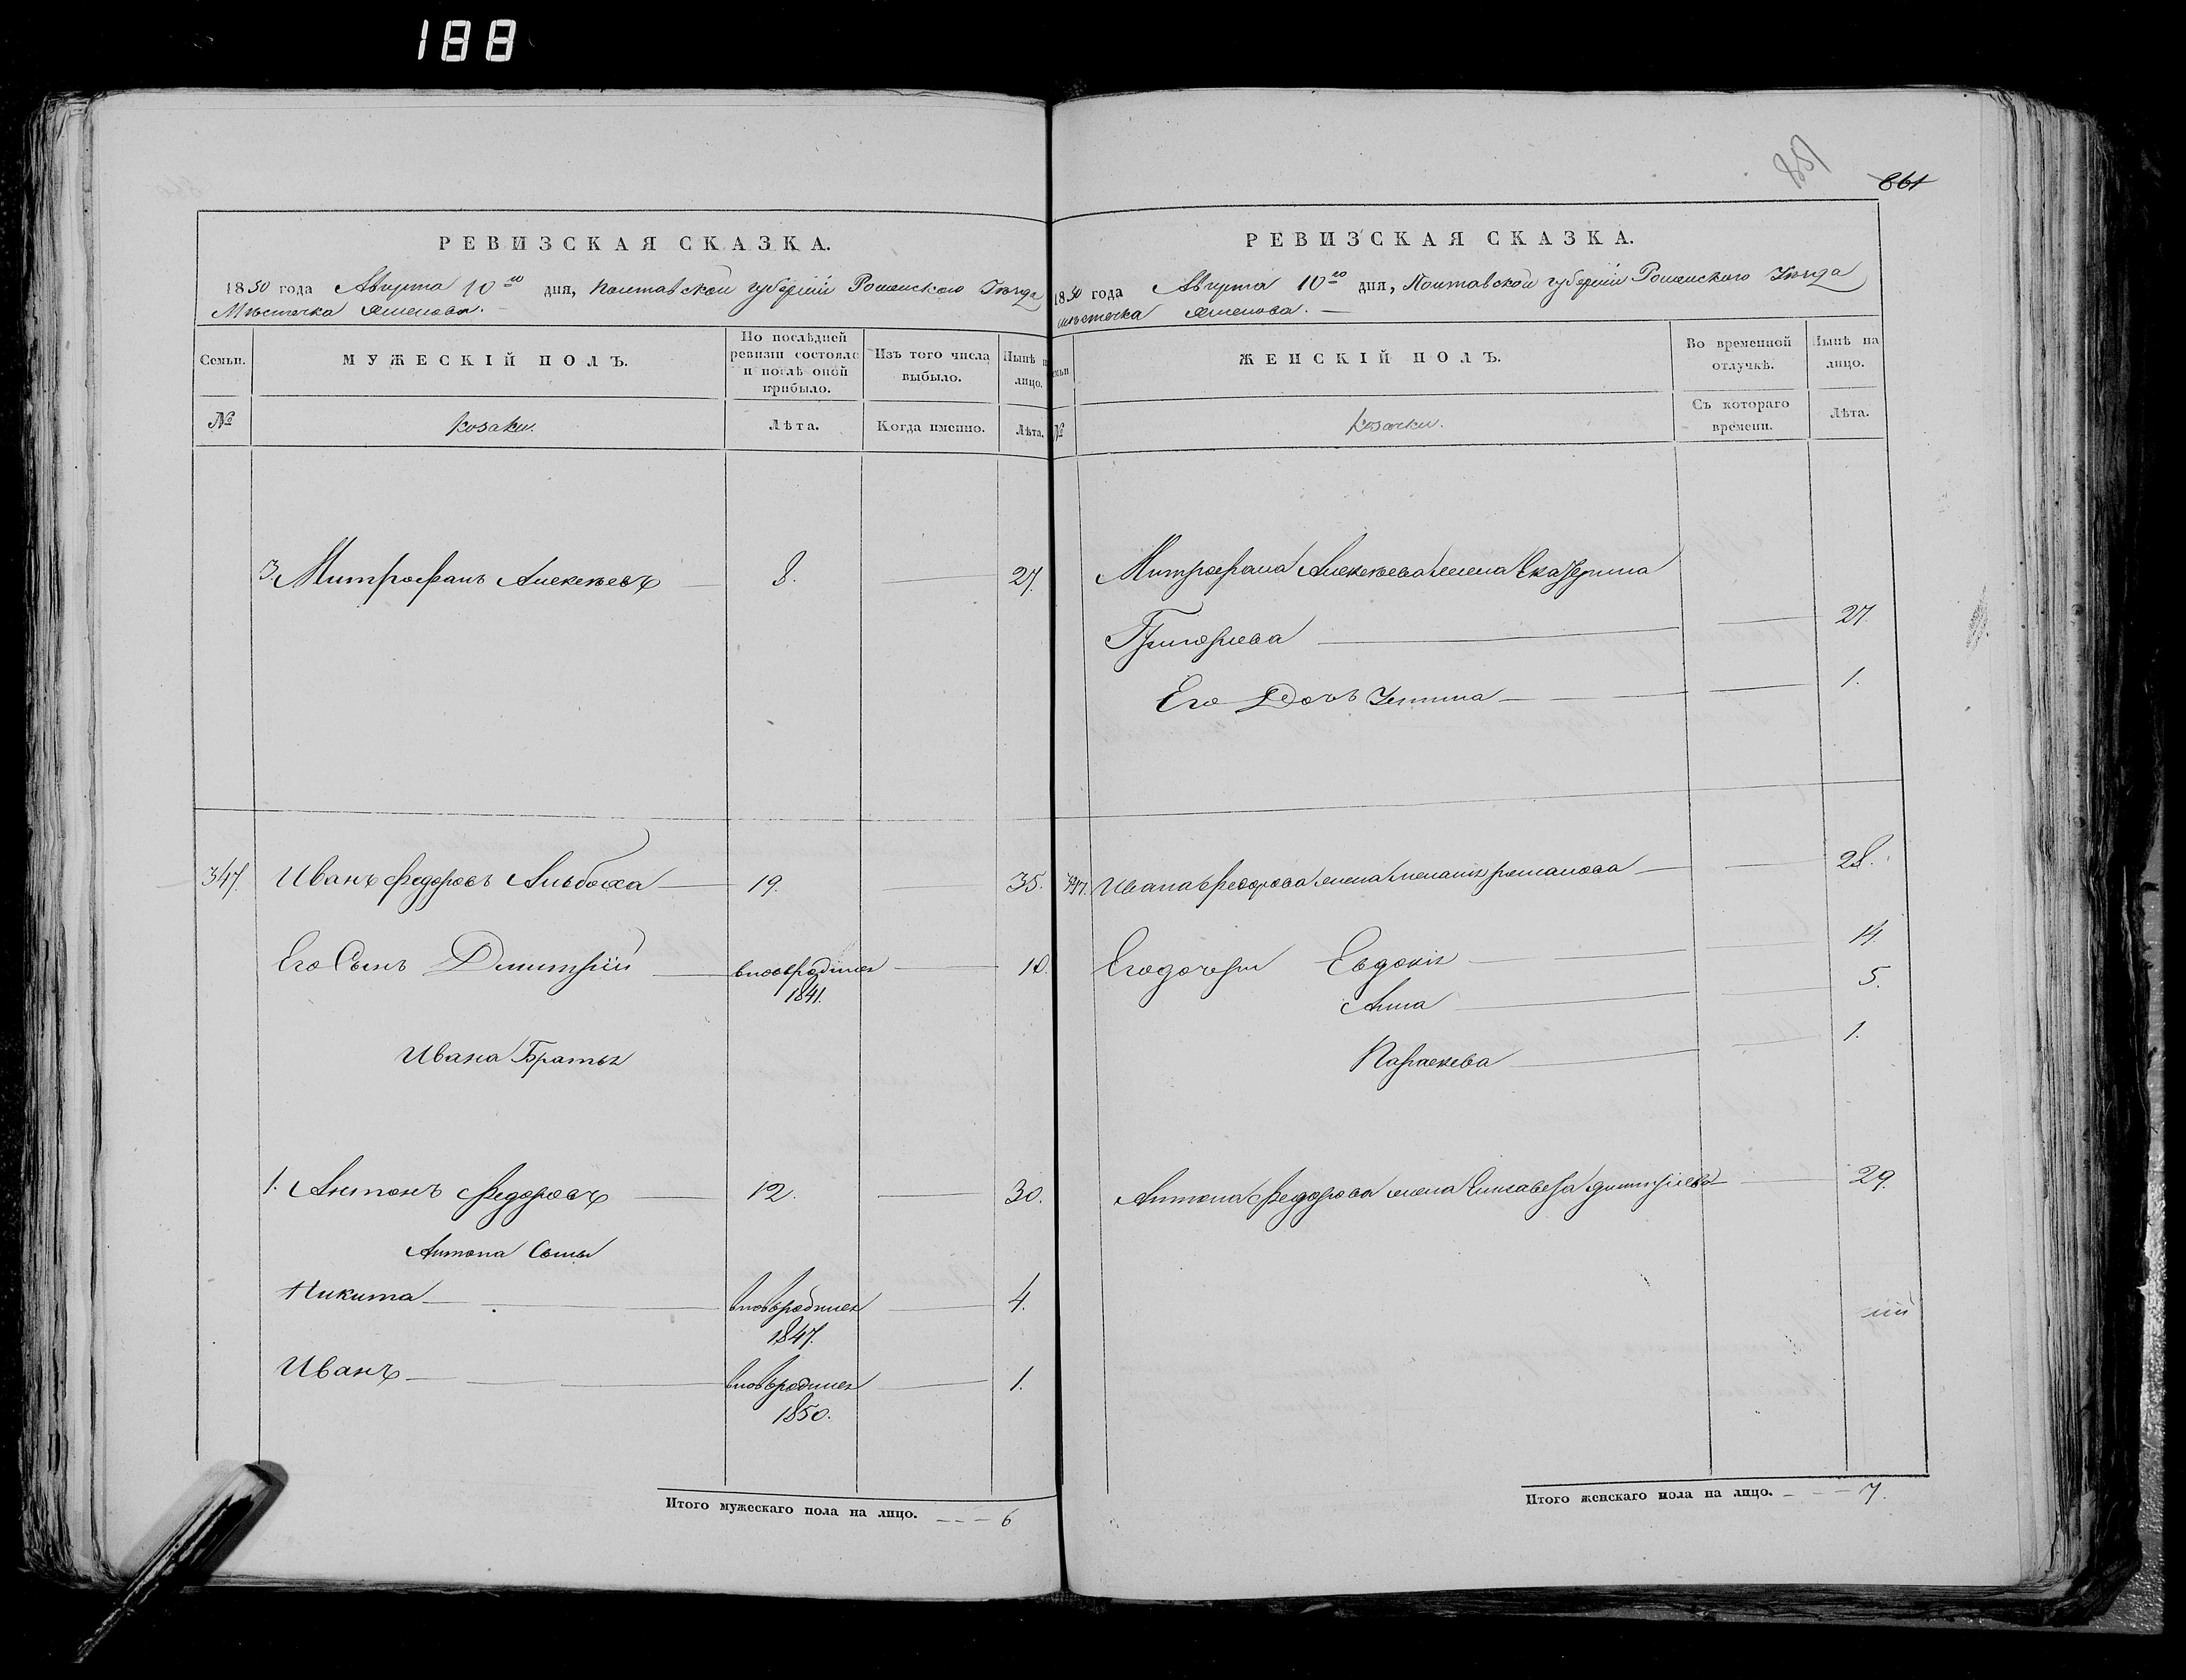 188
861
РЕВИЗСКАЯ СКАЗКА.
1850 года Августа 10го дня, Полтавской губерніи Роменскаго Уѣзда
Мѣстечка
Семьи.
МУЖЕСКІЙ ПОЛЪ.
По послѣдней ревизіи состояло и послѣ оной прибыло.
Изъ того числа выбыло.
Нынѣ на лицо.
№
козаки.
Лѣта.
Когда именно.
Лѣта.
3. Митрофанъ Алексѣевъ 8. 27.
347. Иванъ Федоровъ 19. 35.
Его Сынъ Дмитрій вновьродился 10.
1841.
Ивана Братья
1. Антонъ Федоровъ 12. 30.
Антона Сыны
Никита вновьродился 4.
1847.
Иванъ вновьродился 1.
1850.
Итого мужескаго пола на лицо. 6
РЕВИЗСКАЯ СКАЗКА.
1850 года Августа 10го дня, Полтавской губерніи Роменскаго Уѣзда
мѣстечка
ЖЕНСКІЙ ПОЛЪ.
Во временной отлучкѣ.
Нынѣ на лицо.
№
козачки.
Съ котораго времени.
Лѣта.
Митрофана Алексѣева жена Екатерина
Григорьева 27.
Его Дочь 1.
347. Ивана Федорова жена Меланія Романова 28.
Его дочери Евдокія 14.
Анна 5.
Параскева 1.
Антона Федорова жена Елисавета Дмитріева 29.
Итого женскаго пола на лицо. 7.